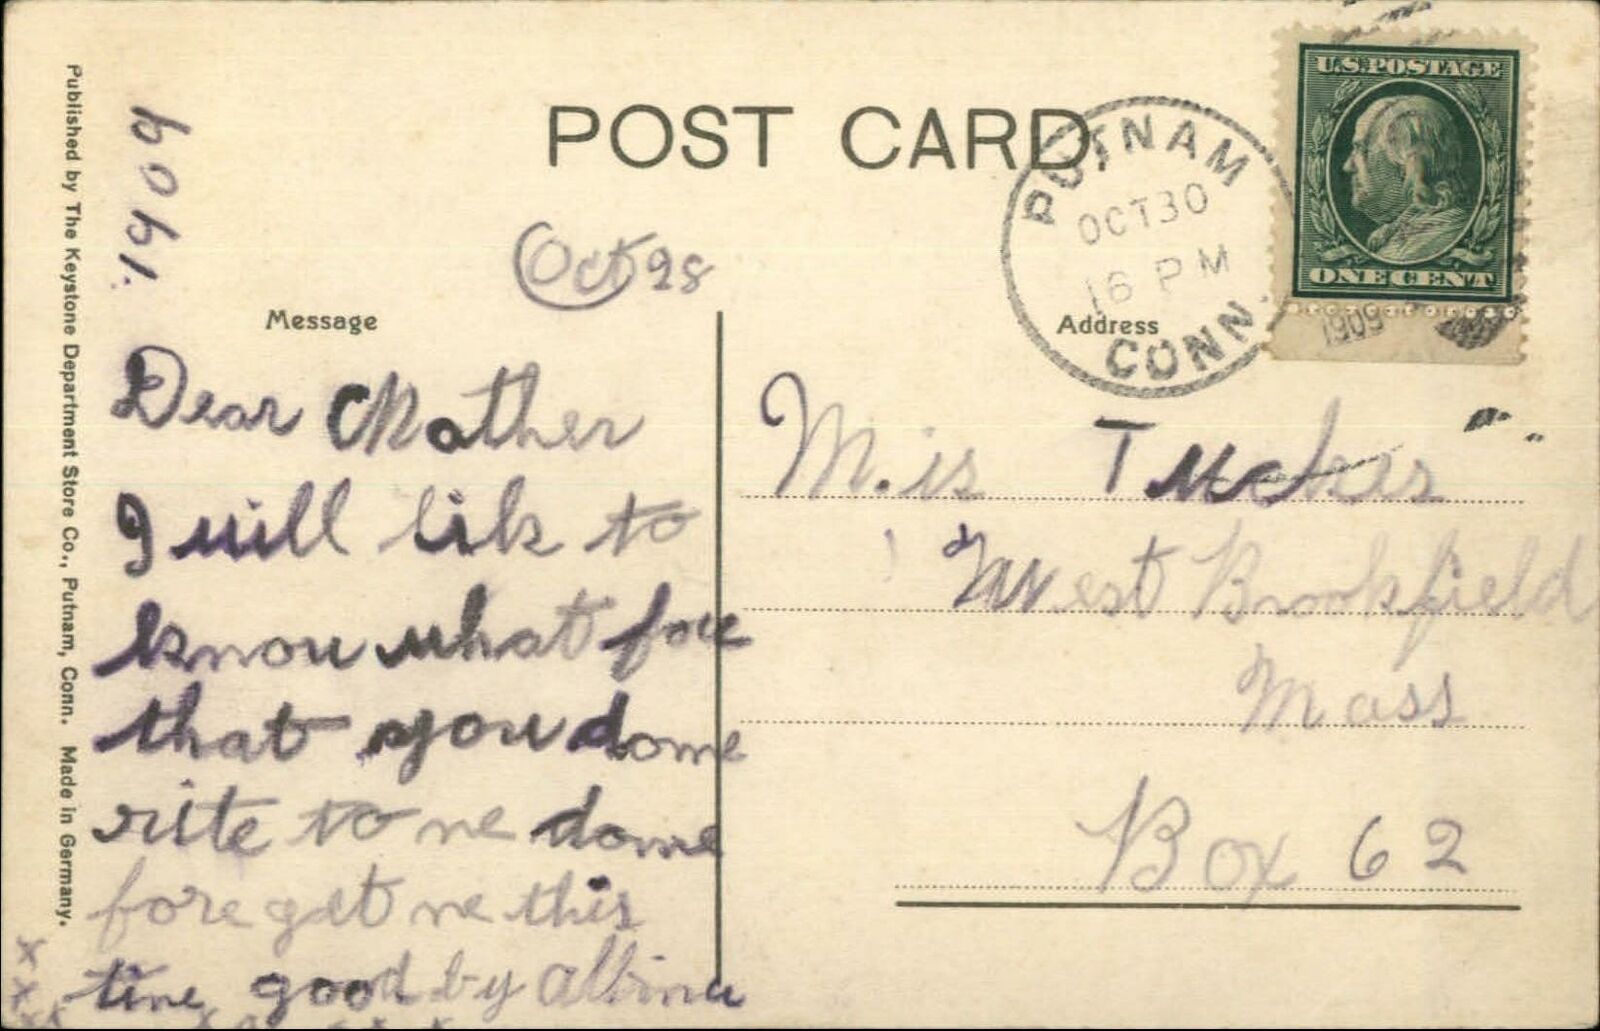 Published by The Keystone Department Store Co., Putnam, Conn. Made in Germany.
1909
POST CARD
PUTNAM
OCT 30
6 PM
CONN.
1909
U.S. POSTAGE
ONE CENT
Oct 28
Message
Address
Dear Mother
I will lik to
know what foe
that you dome
rite to ne dome
fore get ne this
tine good by Albina
x
x
xx
M.is Tucker
West Brookfield
Mass
Box 62